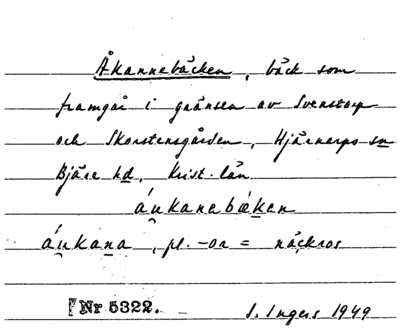 Åkannebäcken, bäck som
framgår i gränsen av Svenstorp
och Skorstensgården, Hjärnarps sn
Bjäre hd, Krist. län
áu̯kanebæken
áu̯kana, pl. -or = näckros
Nr 5322. I. Ingers 1949